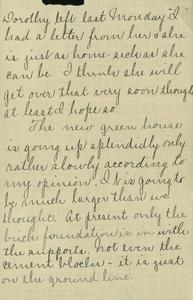 Dorothy left last Monday & I
had a letter from her & she
is just as home-sick as she
can be. I think she will
get over that very soon though
at least I hope so.
The new green house
is going up splendidly only
rather slowly according to
my opinion. It is going to
be much larger than we
thought. At present only the
foundation is in with
the supports. Not even the
cement blocks - it is just
on the ground line.